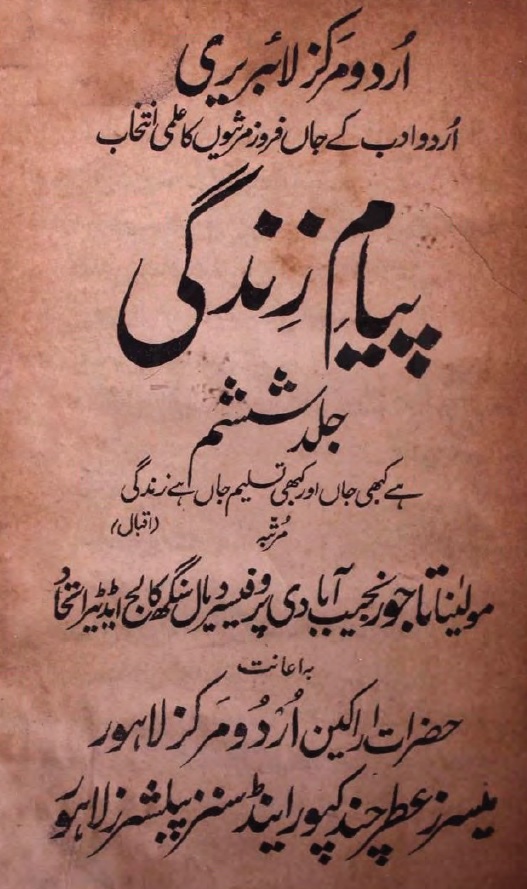 اُردو مرکز لائبریری
اُردو ادب کے جاں فروز مرثیوں کا علمی انتخاب
پیامِ زِندگی
جلد ششم
ہے کبھی جاں اور کبھی تسلیم جاں ہے زندگی
(اقبال)
مُرتبہ
مولیٰنا تاجور نجیب آبادی پروفیسر دیال سنگھ کالج ایڈیٹر اتحاد
بہ اعانت
حضرات اراکین اُردُو مَرکز لاہور
میسرز عطر چند کپور اینڈ سنز پبلشرز لاہور